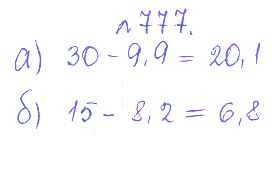 № 777.
а) 30 - 9,9 = 20,1
б) 15 - 8,2 = 6,8